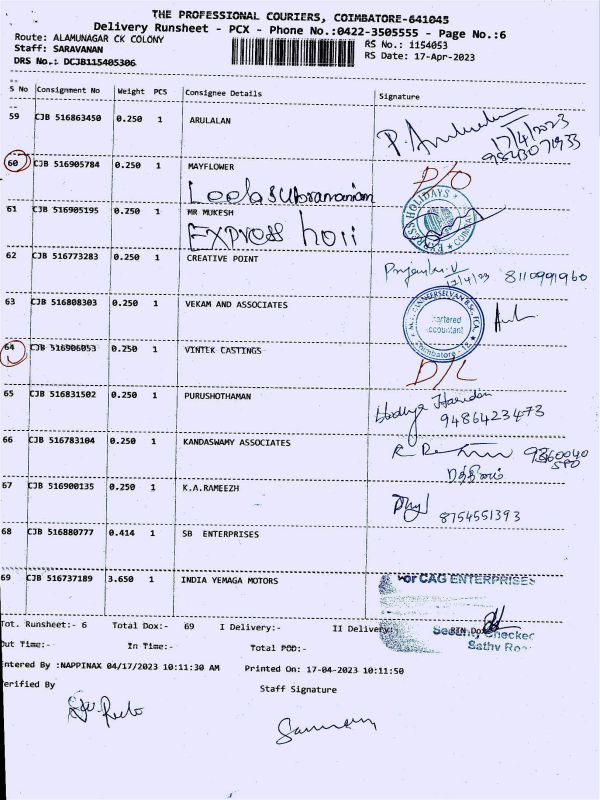 THE PROFESSIONAL COURIERS, COIMBATORE-641045
Delivery Runsheet - PCX - Phone No.:0422-3505555 - Page No.:6
Route: ALAMUNAGAR CK COLONY
Staff: SARAVANAN
RS No.: 1154053
DRS No.: DCJB115405306
RS Date: 17-Apr-2023
S No Consignment No Weight PCS Consignee Details Signature
59 CJB 516863450 0.250 1 ARULALAN
17/4/2023
9843071933
60 CJB 516905784 0.250 1 MAYFLOWER D/O
Leela Subramaniam
61 CJB 516905195 0.250 1 MR MUKESH
EXPRESS HOLIDAYS COIMBATORE
EXPRESS holi
62 CJB 516773283 0.250 1 CREATIVE POINT
8110991960
63 CJB 516808303 0.250 1 VEKAM AND ASSOCIATES
Chartered
Accountant
Coimbatore - 12
64 CJB 516906053 0.250 1 VINTEK CASTINGS D/L
65 CJB 516831502 0.250 1 PURUSHOTHAMAN
9486423473
66 CJB 516783104 0.250 1 KANDASWAMY ASSOCIATES
67 CJB 516900135 0.250 1 K.A.RAMEEZH
8754551393
68 CJB 516880777 0.414 1 SB ENTERPRISES
69 CJB 516737189 3.650 1 INDIA YEMAGA MOTORS For CAG ENTERPRISES
Tot. Runsheet:- 6 Total Dox:- 69 I Delivery:- II Delivery:
Security Checker
Out Time:- In Time:- Total POD:- Sathy
Entered By :NAPPINAX 04/17/2023 10:11:30 AM Printed On: 17-04-2023 10:11:50
Verified By Staff Signature